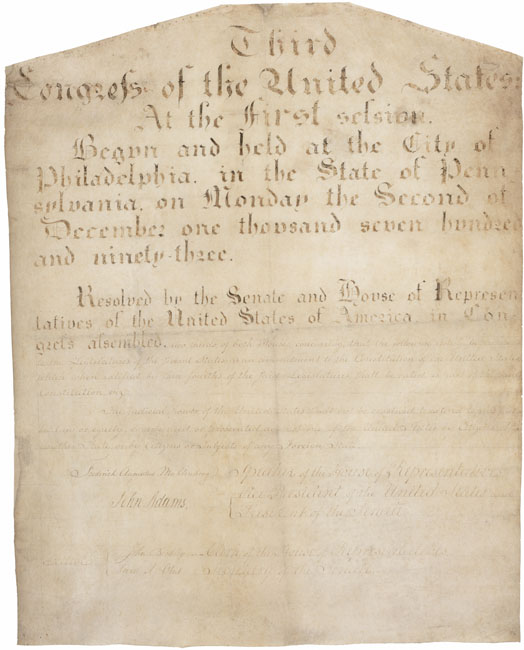 Third
Congreſs of the United States:
At the First seſsion,
Begun and held at the City of
Philadelphia, in the State of Penn-
sylvania, on Monday the Second of
December one thousand seven hundred
and ninety-three.
Resolved by the Senate and House of Represen-
tatives of the United States of America in Con-
greſs aſsembled, of both Houses concurring that the following
to the Legislatures of the Several States as an amendment to the Constitution of the United States
which when ratified by three fourths of the said Legislatures shall be valid as part of the said
Constitution, viz.
The Judicial Power of the United States shall not be construed to extend to any suit
in law or equity, commenced or prosecuted against one of the United States by Citizens of
another State or by Citizens or Subjects of any Foreign State.
Speaker of the House of Representatives
John Adams, Vice President of the United States and
President of the Senate.
Clerk of the House of Representatives
Secretary of the Senate